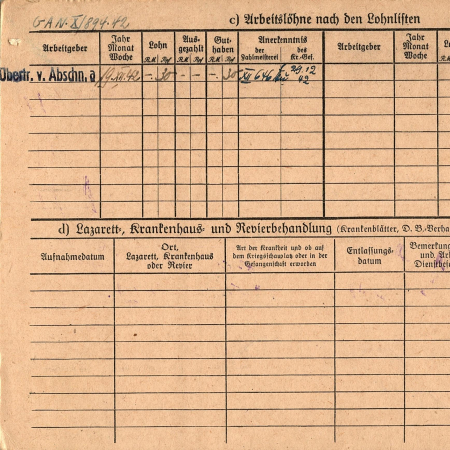 GAN. X/894.42
c) Arbeitslöhne nach den Lohnlisten
Arbeitgeber Jahr Monat Woche Lohn Ausgezahlt Guthaben Anerkenntnis Arbeitgeber Jahr Monat Woche
RM Rpf RM Rpf RM Rpf der Zahlmeisterei des Kr.-Gef.
Übertr. v. Abschn. a 42 -. 30 - - -. 30 646 29.12
42
d) Lazarett-, Krankenhaus- und Revierbehandlung (Krankenblätter, D. B.-Verha
Aufnahmedatum Ort, Lazarett, Krankenhaus oder Revier Art der Krankheit und ob auf dem Kriegsschauplatz oder in der Gefangenschaft erworben Entlassungs-datum Bemerkung und Arb Dienstbe